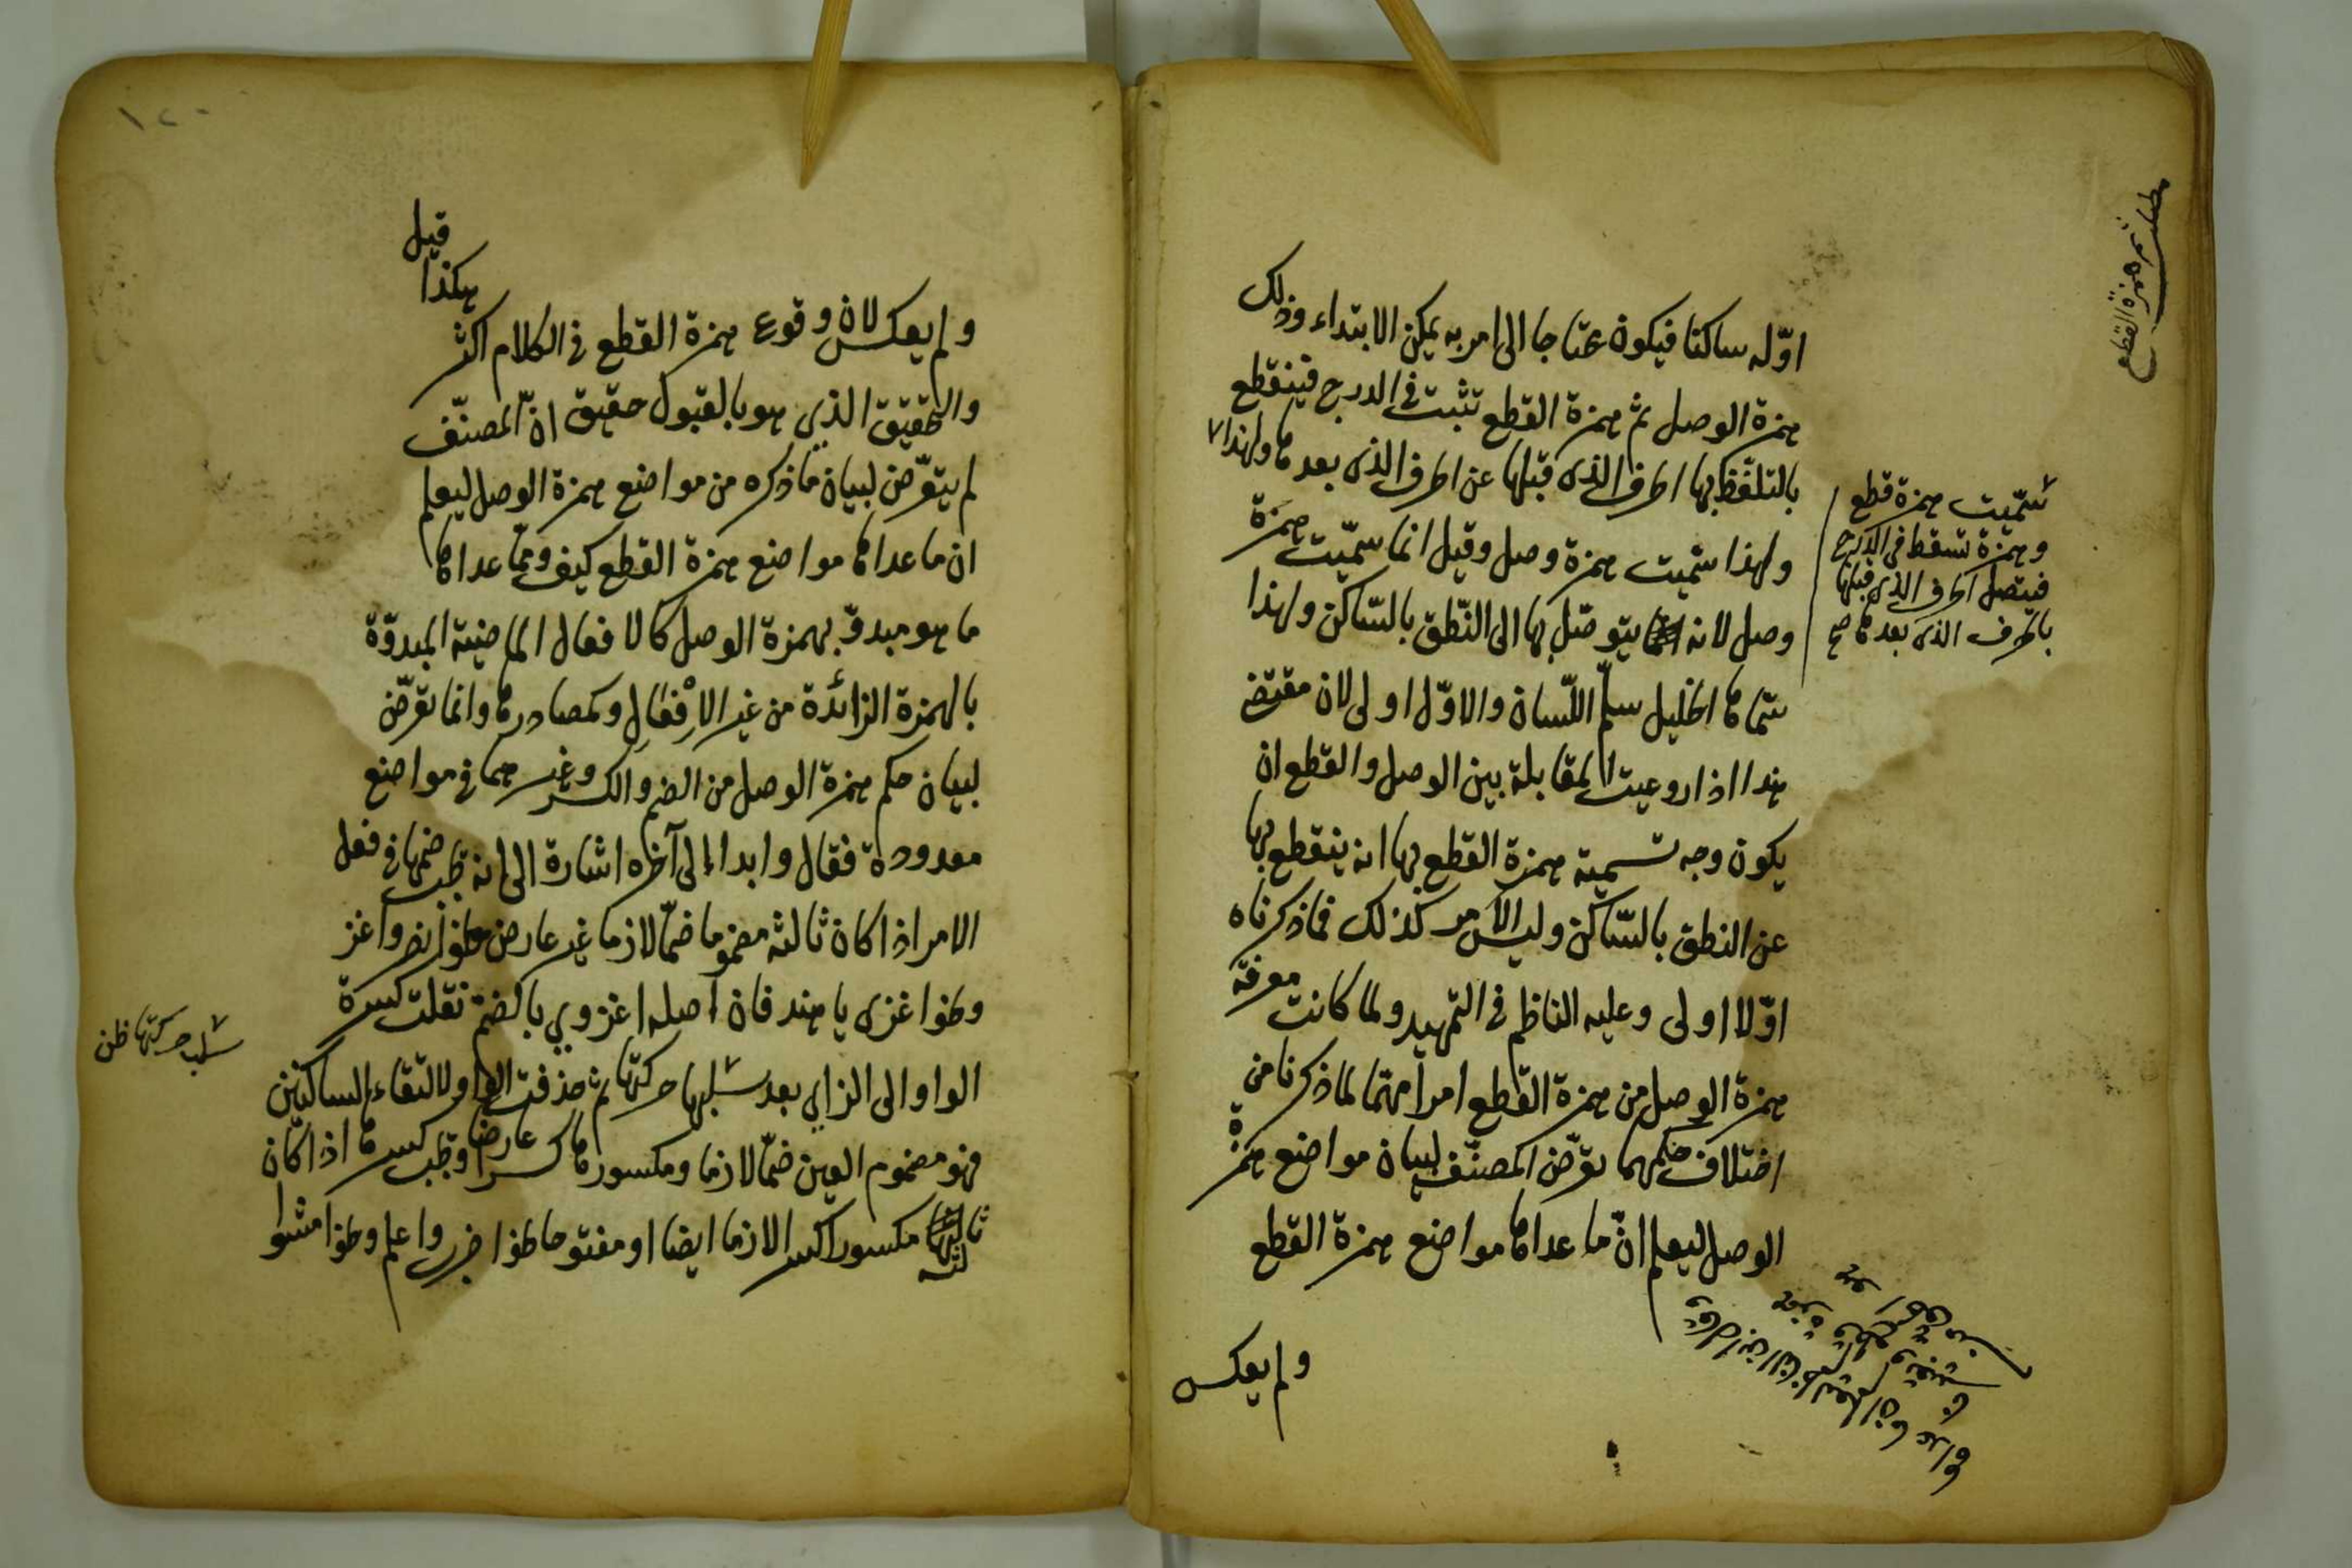 اوّله ساكنا فيكون محتاجا الى امر به يمكن الابتداء وذلك
همزة الوصل ثم همزة القطع تثبت في الدرج فينقطع
بالتلفّظ بها الحرف الذى قبلها عن الحرف الذى بعدها ولهذا
ولهذا سمّيت همزة وصل وقيل انما سمّيت همزة
وصل لانه يتوصّل بها الى النّطق بالسّاكن ولهذا
سمّاها الخليل سلّم اللّسان والاوّل اولى لان مقتضى
هذا اذا روعيت المقابلة بين الوصل والقطع ان
يكون وجه تسمية همزة القطع بها انه ينقطع بها
عن النطق بالسّاكن وليس الامر كذلك فما ذكرناه
اوّلا اولى وعليه الناظم في التمهيد ولما كانت معرفة
همزة الوصل من همزة القطع امرا مهتما لما ذكرنا من
اختلاف حكمهما تعرّض المصنّف لبيان مواضع همزة
الوصل ليعلم انّ ما عداها مواضع همزة القطع
ولم يعكس
سمّيت همزة قطع
وهمزة تسقط في الدّرج
فيتصل الحرف الذى قبلها
بالحرف الذى بعدها صح
همزة القطع
وقال ابن الناظم
١٢٠
قيل
هكذا
ولم يعكس لان وقوع همزة القطع في الكلام اكثر
والتحقيق الذي هو بالقبول حقيق انّ المصنّف
لم يتعرّض لبيان ما ذكره من مواضع همزة الوصل ليعلم
ان ما عداها مواضع همزة القطع كيف وممّا عداها
ما هو مبدوّ بهمزة الوصل كالافعال الماضية المبدوّة
بالهمزة الزائدة من غير الافعال وكمصادرها وانما تعرّض
لبيان حكم همزة الوصل من الضم والكسر وغيرهما في مواضع
معدودة فقال وابدا الى آخره اشارة الى انه يجب ضمها في فعل
الامر اذا كان ثالثه مضموما ضمّا لازما غير عارض نحو انظر واغز
ونحو اغزى يا هند فان اصله اغزوي بالضم نقلت كسرة
الواو الى الزاي بعد سلبها حركتها ثم حذفت الواو لالتقاء الساكنين
فهو مضموم العين ضمّا لازما ومكسورها كسرا عارضا ويجب كسرها اذا كان
ثالثه مكسورا كسرا لازما ايضا او مفتوحا نحو اضرب واعلم ونحو امشوا
سلب حركتها ظن